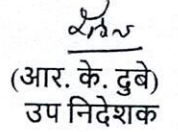 (आर. के. दुबे)
उप निदेशक